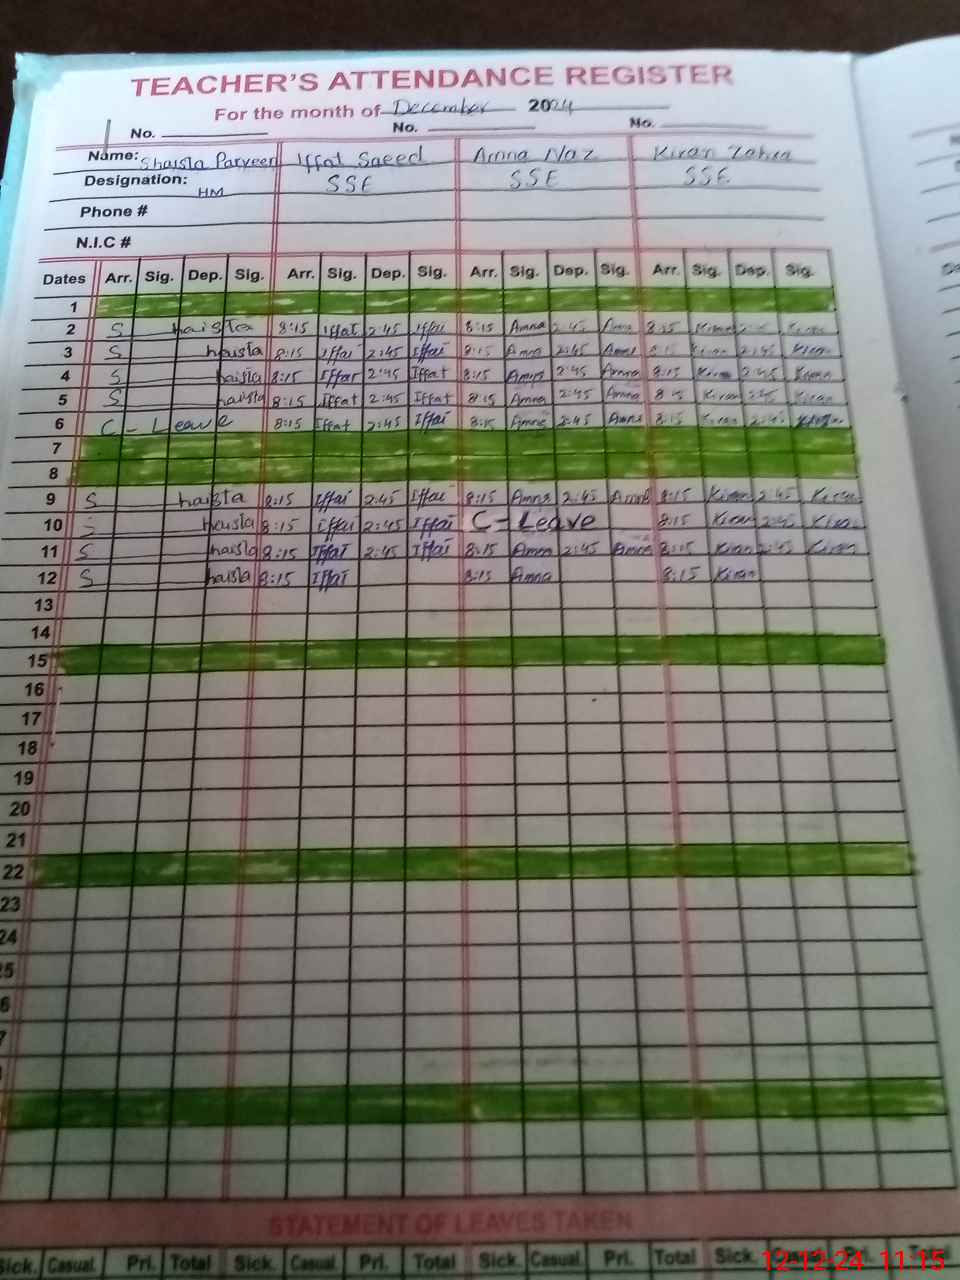 TEACHER'S ATTENDANCE REGISTER
For the month of December 2024
No. No. No.
Name: Shaista Parveen Iffat Saeed Amna Naz Kiran Zahra
Designation: HM SSE SSE SSE
Phone #
N.I.C #
Dates Arr. Sig. Dep. Sig. Arr. Sig. Dep. Sig. Arr. Sig. Dep. Sig. Arr. Sig. Dep. Sig.
1
2 S haista 8:15 Iffat 2:45 Iffat 8:15 Amna 2:45 Amna 8:15 Kiran 2:45 Kiran
3 S haista 8:15 Iffat 2:45 Iffat 8:15 Amna 2:45 Amna 8:15 Kiran 2:45 Kiran
4 S haista 8:15 Iffat 2:45 Iffat 8:15 Amna 2:45 Amna 8:15 Kiran 2:45 Kiran
5 S haista 8:15 Iffat 2:45 Iffat 8:15 Amna 2:45 Amna 8:15 Kiran 2:45 Kiran
6 C - Leave 8:15 Iffat 2:45 Iffat 8:15 Amna 2:45 Amna 8:15 Kiran 2:45
7
8
9 S haista 8:15 Iffat 2:45 Iffat 8:15 Amna 2:45 Amna 8:15 Kiran 2:45 Kiran
10 S haista 8:15 Iffat 2:45 Iffat C - Leave 8:15 Kiran 2:45 Kiran
11 S haista 8:15 Iffat 2:45 Iffat 8:15 Amna 2:45 Amna 8:15 Kiran 2:45 Kiran
12 S haista 8:15 Iffat 8:15 Amna 8:15 Kiran
13
14
15
16
17
18
19
20
21
22
23
24
5
6
7
STATEMENT OF LEAVES TAKEN
Sick. Casual. Pri. Total Sick. Casual. Pri. Total Sick. Casual. Pri. Total Sick. Casual. Pri. Total
12-12-24 11:15